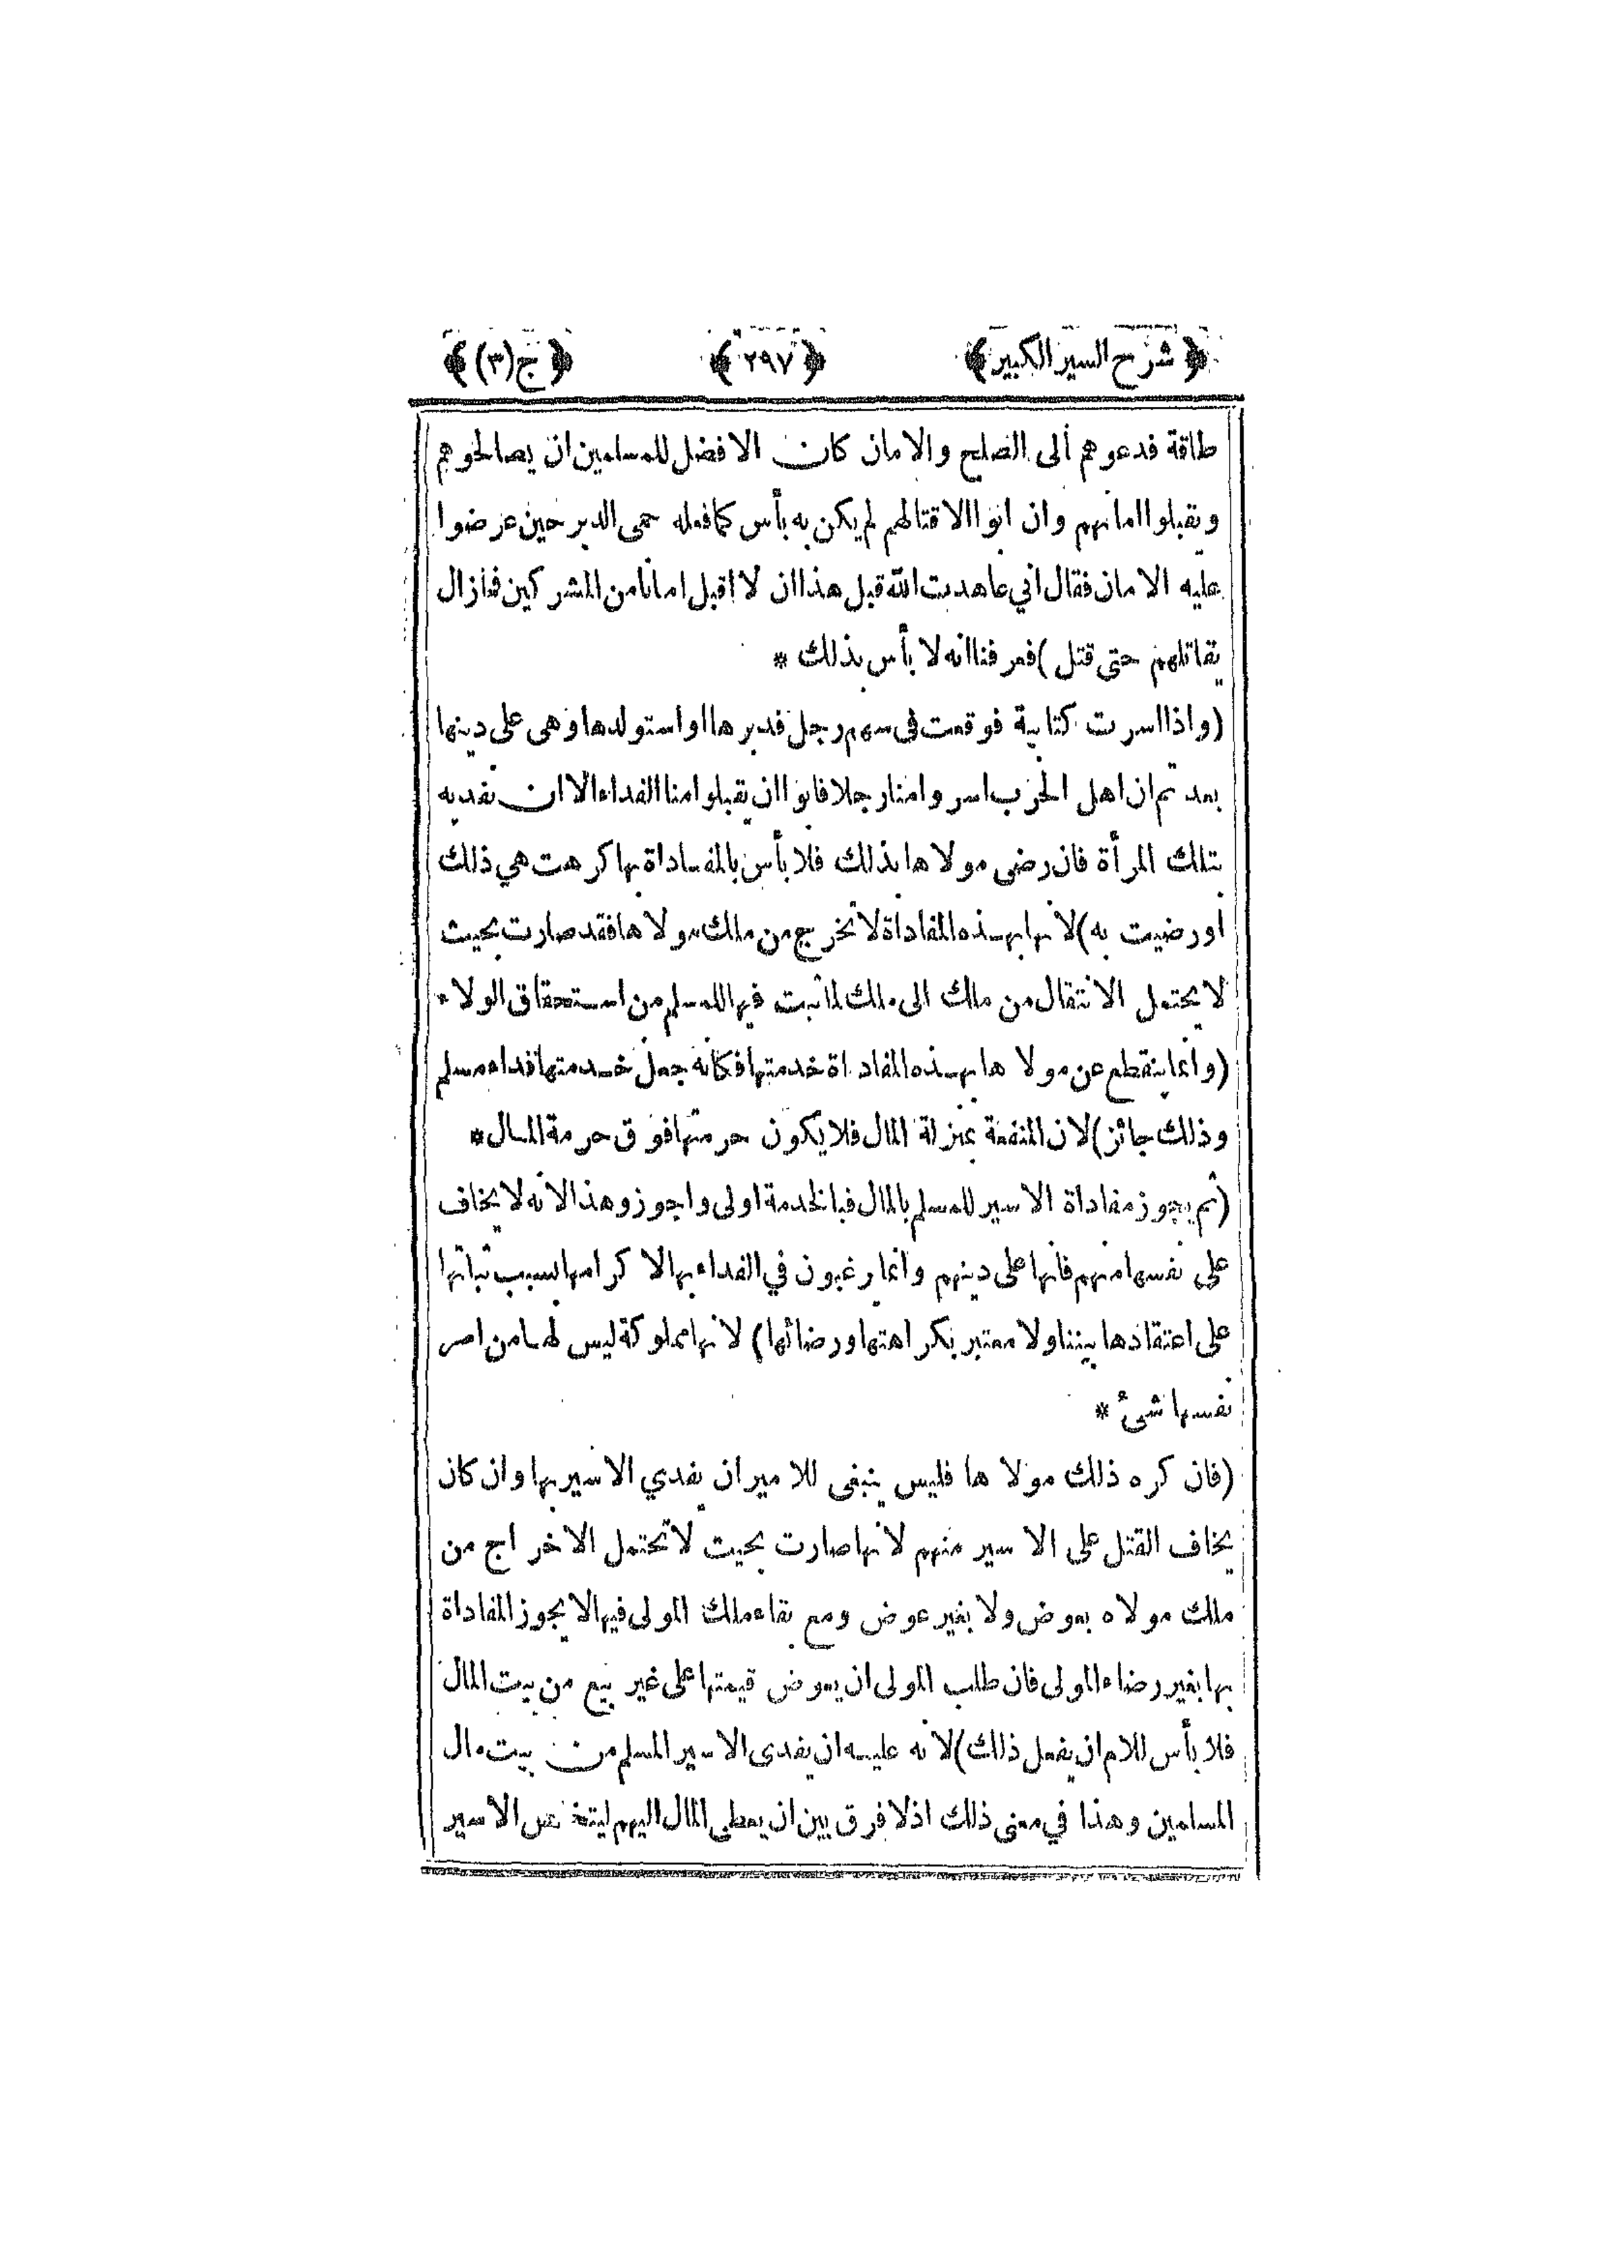 ﴿شرح السير الكبير﴾ ﴿٢٩٧﴾ ﴿ج(٣)﴾
طاقة فدعوهم الى الصلح والامان كان الافضل للمسلمين ان يصالحوهم
ويقبلوا امانهم وان ابوا الا قتالهم لم يكن به بأس كما فعله حمى الدبر حين عرضوا
عليه الامان فقال اني عاهدت الله قبل هذا ان لا اقبل امانا من المشركين فما زال
يقاتلهم حتى قتل) فعرفنا انه لا بأس بذلك *
(واذا اسرت كتابية فوقعت في سهم رجل فدبرها او استولدها وهى على دينها
بعد ثم ان اهل الحرب اسروا منا رجلا فابوا ان يقبلوا منا الفداء الا ان نفديه
بتلك المرأة فان رضى مولاها بذلك فلا بأس بالمفاداة بها كرهت هي ذلك
او رضيت به) لانها بهذه المفاداة لا تخرج من ملك مولاها فقد صارت بحيث
لا يحتمل الانتقال من ملك الى ملك لما ثبت فيها للمسلم من استحقاق الولاء
(وانما ينقطع عن مولاها بهذه المفاداة خدمتها فكأنه جعل خدمتها فداء مسلم
وذلك جائز) لان المنفعة بمنزلة المال فلا يكون حرمتها فوق حرمة المال *
(ثم يجوز مفاداة الاسير المسلم بالمال فبالخدمة اولى واجوز وهذا لانه لا يخاف
على نفسها منهم فانها على دينهم وانما رغبون في الفداء بها لاكرامها بسبب ثباتها
على اعتقادها بيننا ولا معتبر بكراهتها ورضائها) لانها مملوكة ليس لها من امر
نفسها شئ *
(فان كره ذلك مولاها فليس ينبغى للامير ان يفدي الاسير بها وان كان
يخاف القتل على الاسير منهم لانها صارت بحيث لا تحتمل الاخراج من
ملك مولاه بعوض ولا بغير عوض ومع بقاء ملك المولى فيها لا يجوز المفاداة
بها بغير رضاء المولى فان طلب المولى ان يعوض قيمتها على غير بيع من بيت المال
فلا بأس للامام ان يفعل ذلك) لانه عليه ان يفدى الاسير المسلم من بيت مال
المسلمين وهذا في معنى ذلك اذ لا فرق بين ان يعطى المال اليهم ليتخلص الاسير